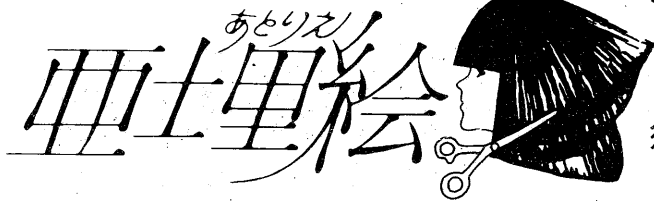 あとりえ
亜土里絵